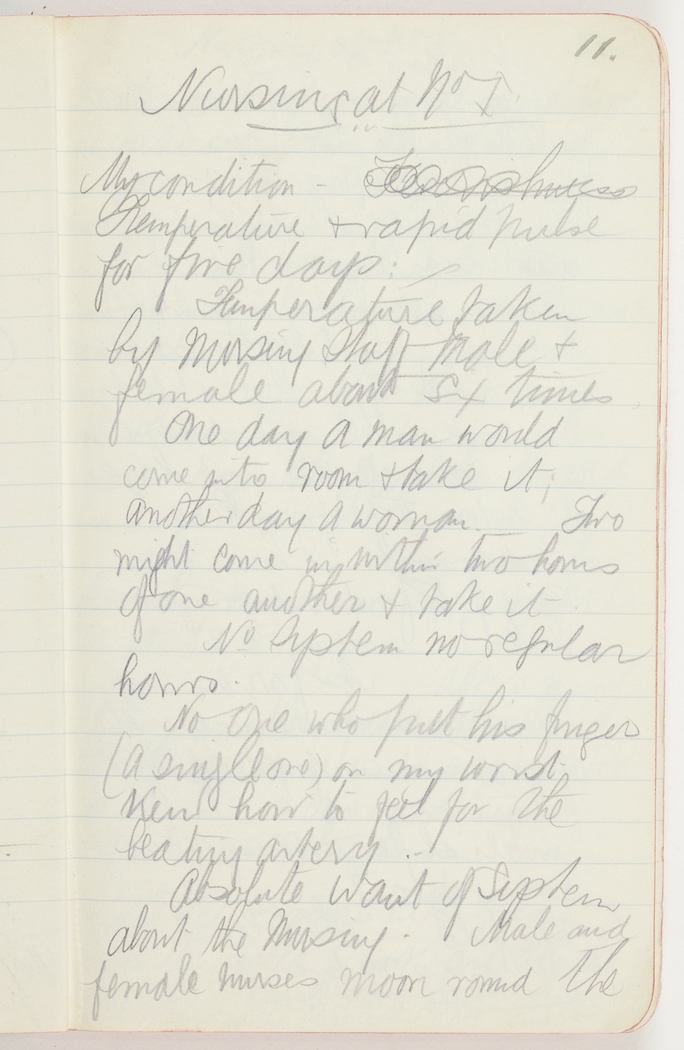 11.
Nursing at No 1.
My condition -
Temperature & rapid pulse
for five days:
Temperature taken
by Nursing Staff male &
female about six times
One day a man would
come into room & take it;
another day a woman. Two
might come in within two hours
of one another & take it
No System no regular
hours.
No one who put his finger
(a single one) on my wrist
knew how to feel for the
beating artery.
Absolute want of System
about the Nursing. Male and
female nurses moon round the